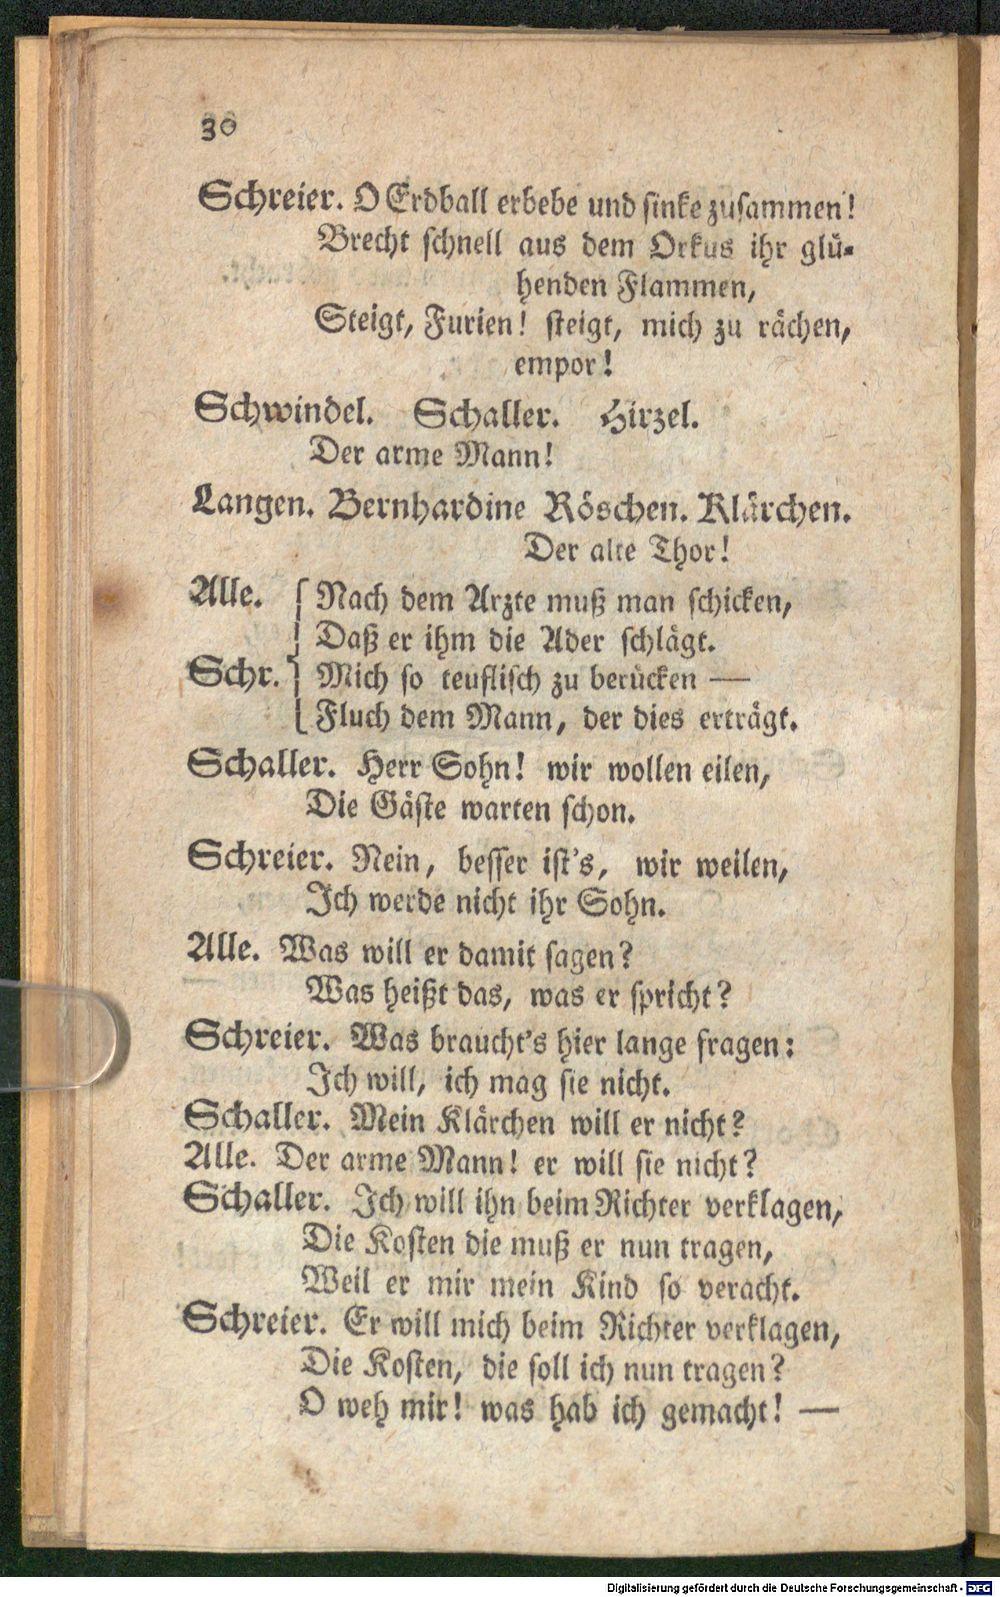 30
Schreier. O Erdball erbebe und sinke zusammen!
Brecht schnell aus dem Orkus ihr glü-
henden Flammen,
Steigt, Furien! steigt, mich zu rächen,
empor!
Schwindel. Schaller. Hirzel.
Der arme Mann!
Langen. Bernhardine Röschen. Klärchen.
Der alte Thor!
Alle. Nach dem Arzte muß man schicken,
Daß er ihm die Ader schlägt.
Schr. Mich so teuflisch zu berücken —
Fluch dem Mann, der dies erträgt.
Schaller. Herr Sohn! wir wollen eilen,
Die Gäste warten schon.
Schreier. Nein, besser ist's, wir weilen,
Ich werde nicht ihr Sohn.
Alle. Was will er damit sagen?
Was heißt das, was er spricht?
Schreier. Was braucht's hier lange fragen:
Ich will, ich mag sie nicht.
Schaller. Mein Klärchen will er nicht?
Alle. Der arme Mann! er will sie nicht?
Schaller. Ich will ihn beim Richter verklagen,
Die Kosten die muß er nun tragen,
Weil er mir mein Kind so veracht.
Schreier. Er will mich beim Richter verklagen,
Die Kosten, die soll ich nun tragen?
O weh mir! was hab ich gemacht! —
Digitalisierung gefördert durch die Deutsche Forschungsgemeinschaft - DFG